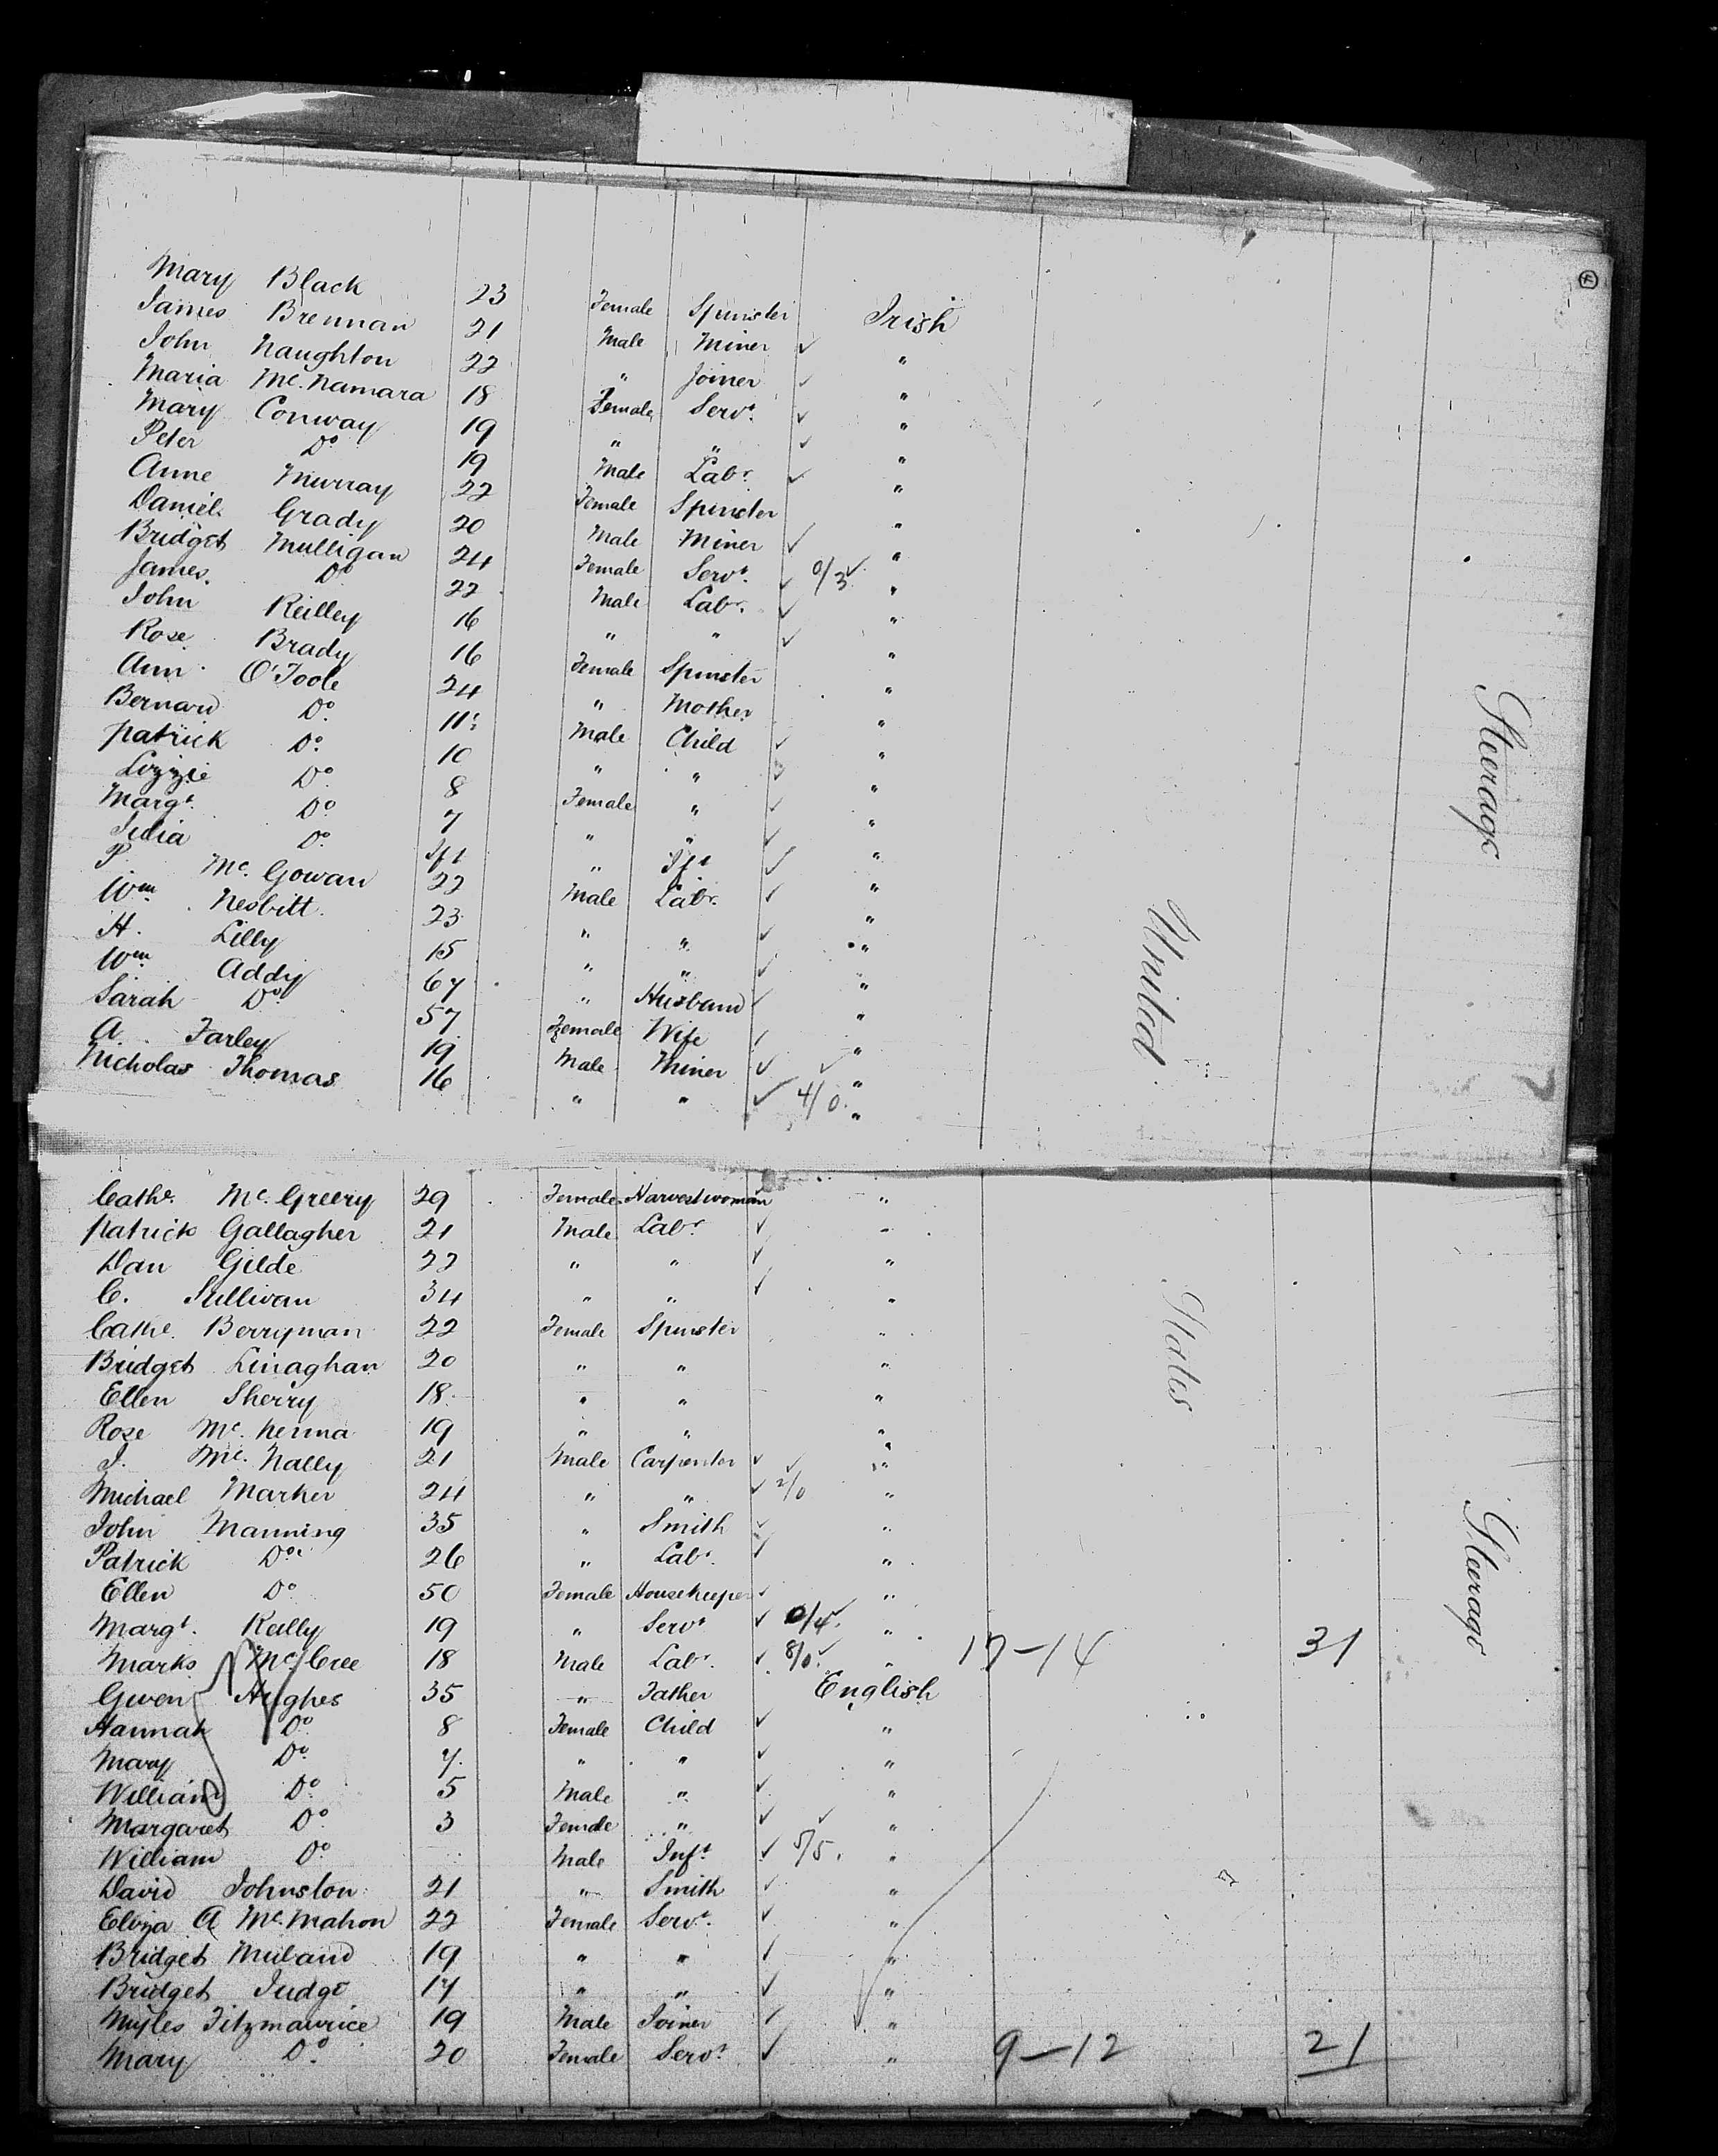 Mary Black 23 Female Spinster Irish
James Brennan 21 Male Miner "
John Naughton 22 " Joiner "
Maria Mc.Namara 18 Female Servt. "
Mary Conway 19 " " "
Peter Do 19 Male Labr. "
Anne Murray 22 Female Spinster "
Daniel Grady 20 Male Miner "
Bridget Mulligan 24 Female Servt. 0/3 "
James. Do 22 Male Labr. "
John Reilley 16 " " "
Rose Brady 16 Female Spinster "
Ann O'Toole 24 " Mother "
Bernard Do. 11 Male Child "
Patrick Do. 10 " " "
Lizzie Do 8 Female " "
Margt. Do 7 " " "
Julia Do. " Ift "
P. Mc. Gowan 22 Male Labr. "
Wm. Nesbitt. 23 " " "
H. Lilly 15 " " "
Wm. Addy 67 " Husband "
Sarah Do. 57 Female Wife "
A. Farley 19 Male Miner "
Nicholas Thomas 16 " " 4/0. "
Steerage
United
Cathe. Mc. Greery 29 Female Harvestwoman "
Patrick Gallagher 21 Male Labr. "
Dan Gilde 22 " " "
C. Sullivan 34 " " "
Cathe. Berryman 22 Female Spinster "
Bridget Linaghan 20 " " "
Ellen Sherry 18 " " "
Rose Mc. Kenna 19 " " "
J. Mc. Nally 21 Male Carpenter "
Michael Marker 24 " " 2/0 "
John Manning 35 " Smith "
Patrick Do. 26 " Labr. "
Ellen Do 50 Female Housekeeper "
Margt. Reilly 19 " Servt 0/4. "
Marks Mc.Cree 18 Male Labr. 8/0. " 17-14 31
Gwen Hughes 35 " Father English
Hannah Do 8 Female Child "
Mary Do. 7. " " "
William Do. 5 Male " "
Margaret Do. 3 Female " "
William Do. Male Inft. 5/5. "
David Johnston 21 " Smith "
Eliza A Mc.Mahon 22 Female Servt. "
Bridget Muland 19 " " "
Bridget Judge 17 " " "
Myles Fitzmaurice 19 Male Joiner "
Mary Do. 20 Female Servt. " 9-12 21
States
Steerage